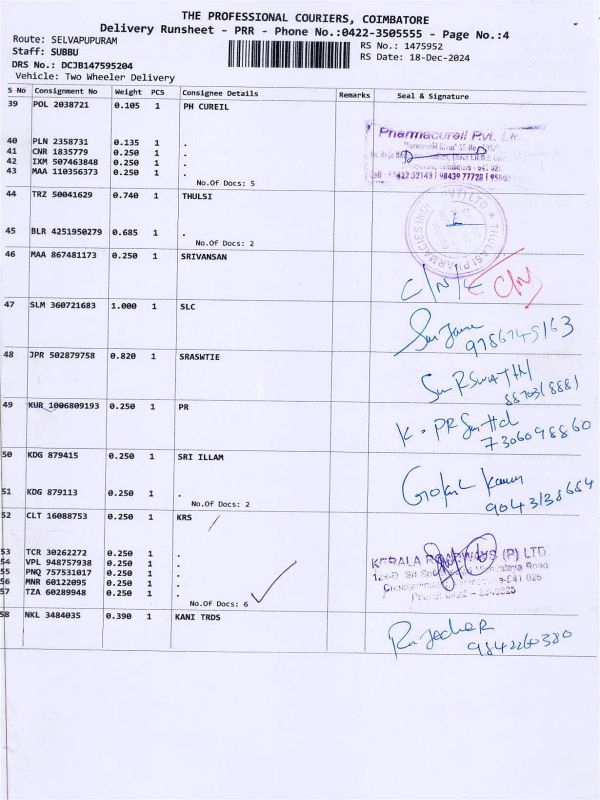 THE PROFESSIONAL COURIERS, COIMBATORE
Delivery Runsheet - PRR - Phone No.:0422-3505555 - Page No.:4
Route: SELVAPUPURAM
Staff: SUBBU
RS No.: 1475952
DRS No.: DCJB147595204
RS Date: 18-Dec-2024
Vehicle: Two Wheeler Delivery
S No Consignment No Weight PCS Consignee Details Remarks Seal & Signature
39 POL 2038721 0.105 1 PH CUREIL
Pharmacureil Pvt. L
40 PLN 2358731 0.135 1 .
41 CNR 1835779 0.250 1 .
42 IXM 507463848 0.250 1 .
43 MAA 110356373 0.250 1 .
No.Of Docs: 5
44 TRZ 50041629 0.740 1 THULSI
45 BLR 4251950279 0.685 1 .
No.Of Docs: 2
46 MAA 867481173 0.250 1 SRIVANSAN
C/N/L C/N
47 SLM 360721683 1.000 1 SLC
48 JPR 502879758 0.820 1 SRASWTIE
49 KUR 1006809193 0.250 1 PR
7306098860
50 KDG 879415 0.250 1 SRI ILLAM
51 KDG 879113 0.250 1 .
No.Of Docs: 2
52 CLT 16088753 0.250 1 KRS
53 TCR 30262272 0.250 1 .
54 VPL 948757938 0.250 1 .
55 PNQ 757531017 0.250 1 .
56 MNR 60122095 0.250 1 .
57 TZA 60289948 0.250 1 .
No.Of Docs: 6
KERALA ROADWAYS (P) LTD
58 NKL 3484035 0.390 1 KANI TRDS
9842260380